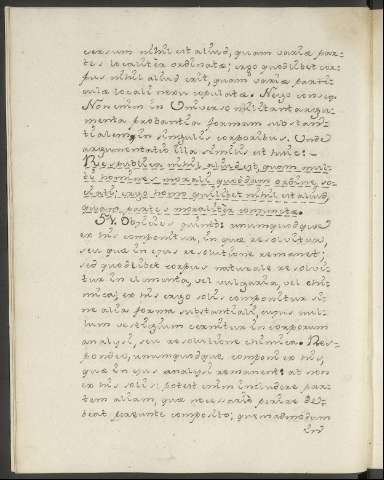 versum nihil est aliud, quam variæ par-
tes localitèr ordinatæ; ergo quodlibet cor-
pus nihil aliud erit, quam variæ parti-
culæ locali nexu copulatæ. Nego conseq:
Non enim in Universo militant argu-
menta probantia formam substan-
tialem, in singulis corporibus. Unde
argumentatio illa similis est huic:
Respublica nihil aliud est, quam mul-
ti homines morali quodam ordine so-
ciati; ergo homo quilibet nihil est aliud,
quam partes moralitèr connexæ.
Objicies quinto: unumquodque
ex his componitur, in quæ resolvitur,
seu quæ in ejus resolutione remanent;
sed quodlibet corpus naturale resolvi-
tur in elementa, vel vulgaria, vel chi-
mica; ex his ergo solis componitur si-
ne alia forma substantiali, cujus nul-
lum vestigium cernitur in corporum
analysi, seu resolutione chimica. Res-
pondeo, unumquodque componi ex his,
quæ in ejus analysi remanent: at non
ex his solis: potest enim includere par-
tem aliam, quæ necessariò perire de-
beat pereunte composito; quemadmodum
in